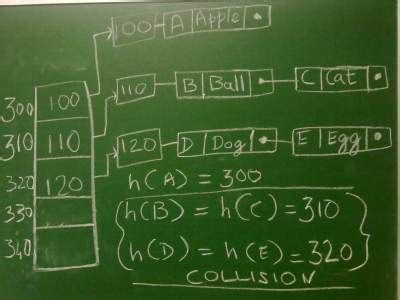 100 A Apple
300 100
110 B Ball C Cat
310 110
120 D Dog E Egg
320 120
h(A) = 300
330 h(B) = h(C) = 310
340 h(D) = h(E) = 320
COLLISION